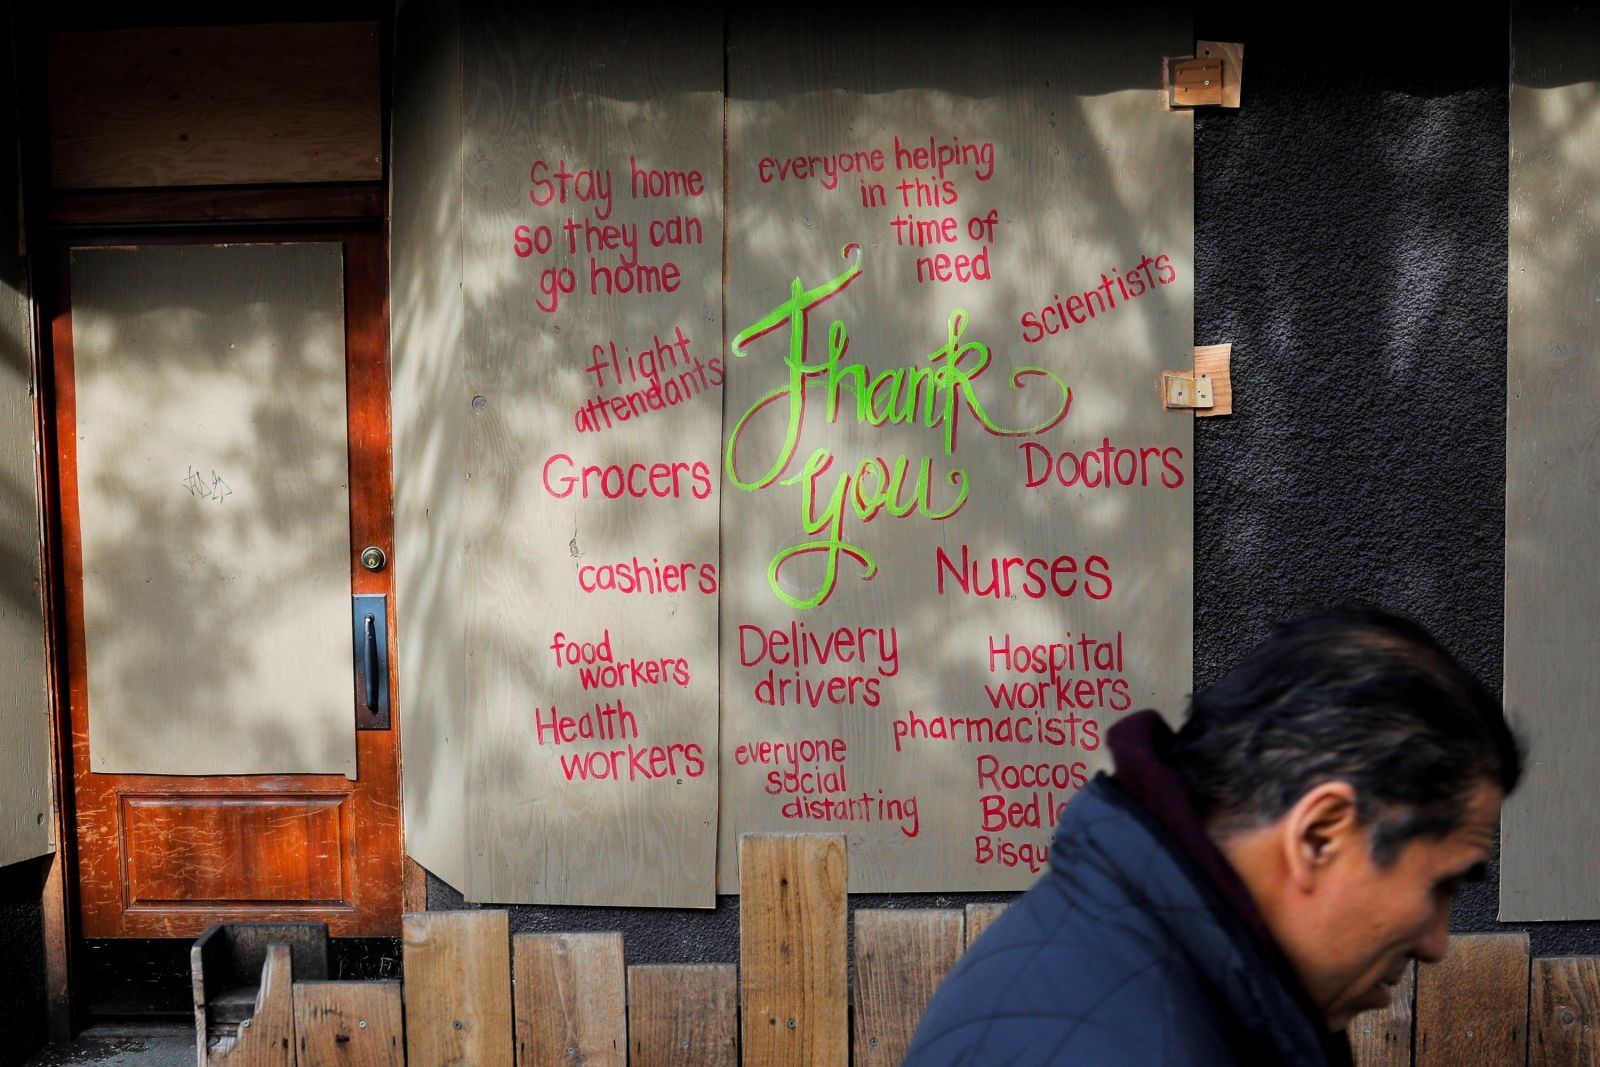 Stay home
so they can
go home
everyone helping
in this
time of
need
scientists
flight
attendants
Thank
you
Grocers
Doctors
cashiers
Nurses
food
workers
Delivery
drivers
Hospital
workers
Health
workers
pharmacists
everyone
social
distanting
Roccos
Bed
Bisqu